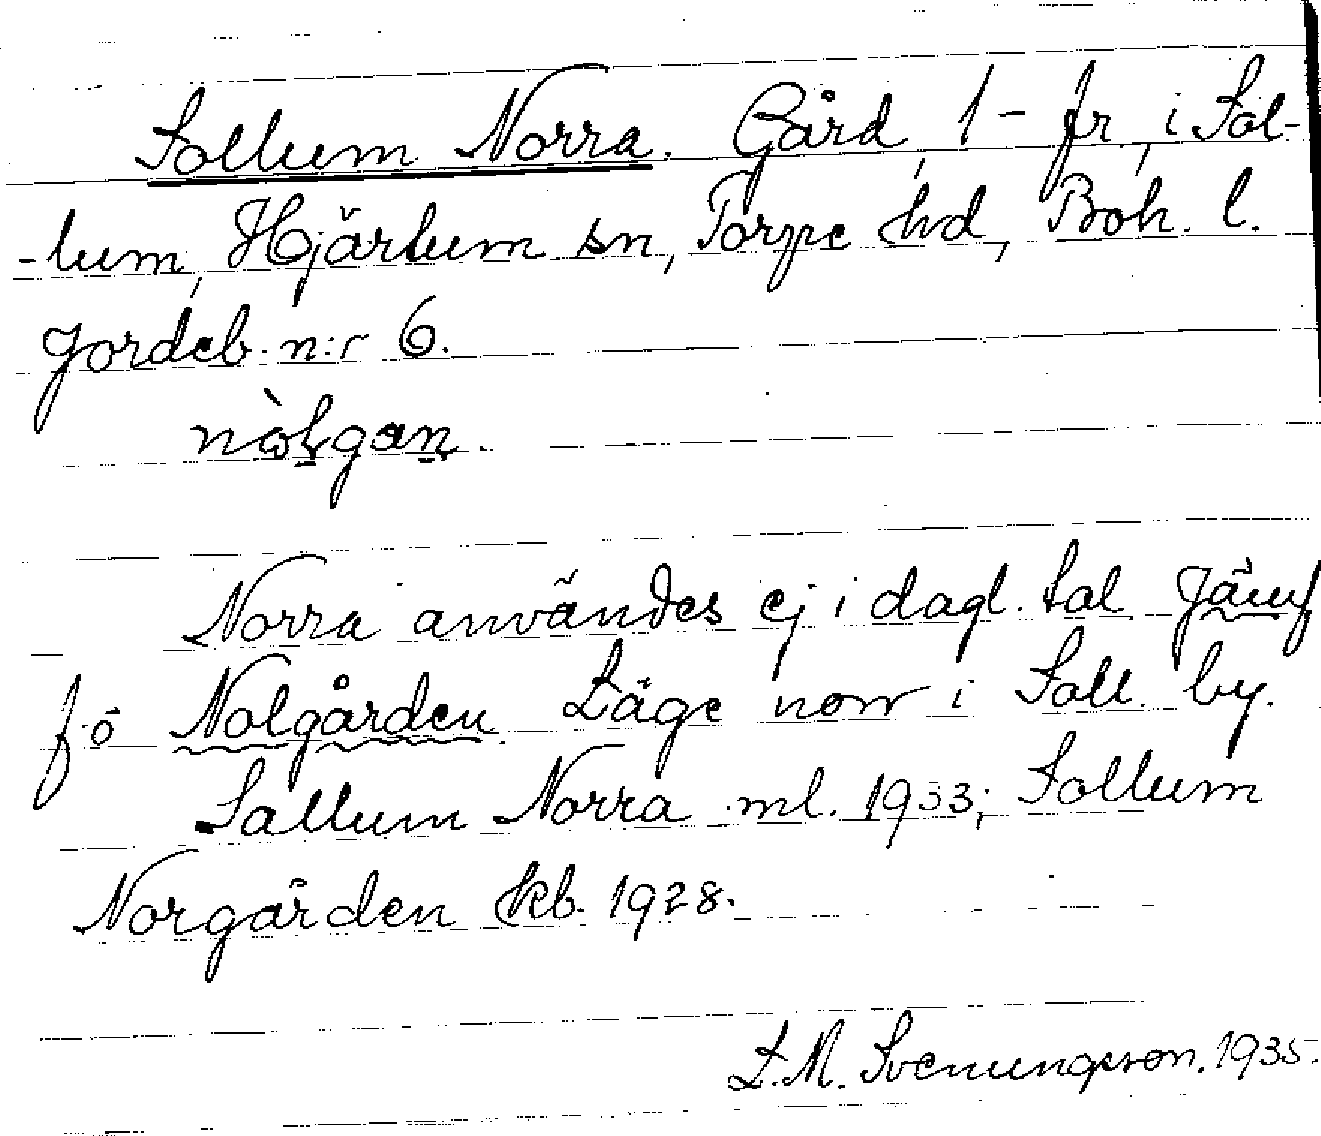 Sollum Norra. Gård, 1 - fr, i Sol-
-lum, Hjärtum sn, Torpe hd, Boh. l.
Jordeb. n:r 6.
nòlgan.
Norra användes ej i dagl. tal. Jämf
f.ö Nolgården. Läge norr i Soll. by.
Sollum Norra ml. 1933; Sollum
Norgården kb. 1928.
L.M. Svenungsson. 1935.